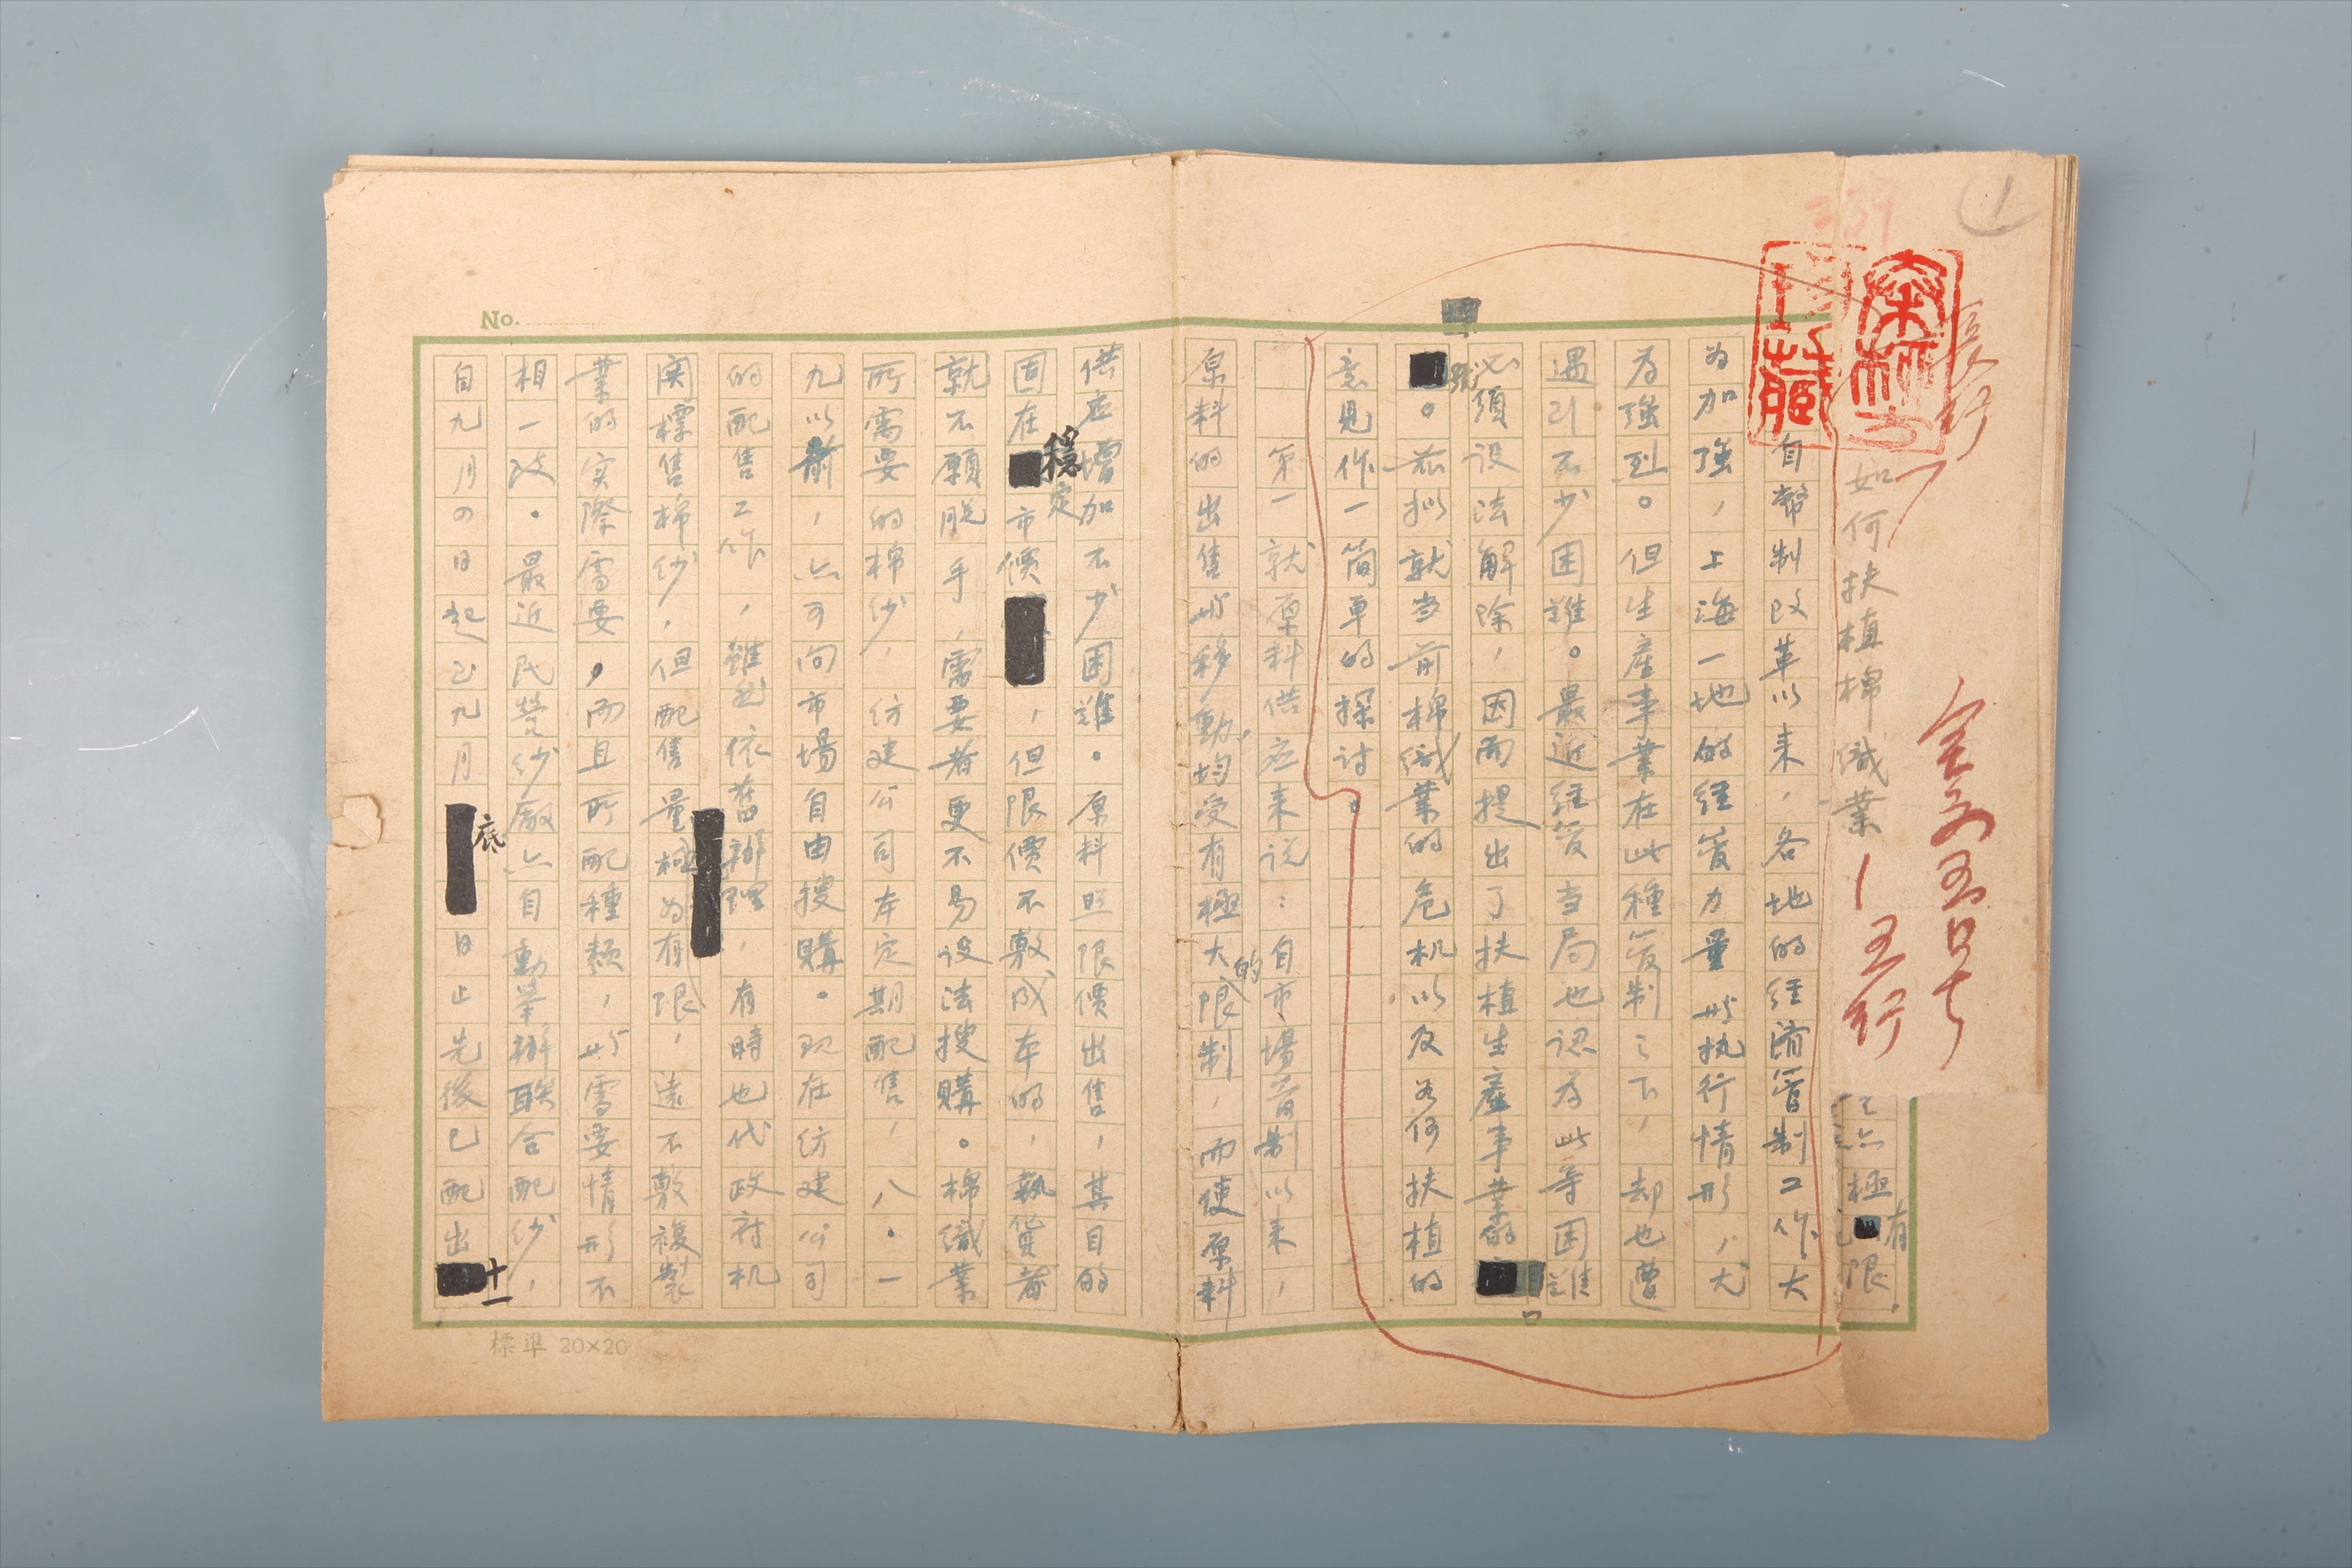 1
如何扶植棉織業
全文五号
1 五行
亦極有限
自幣制改革以来，各地的經濟管制工作大
为加強，上海一地的經管力量与执行情形，尤
为強烈。但生產事業在此種管制之下，却也遭
遇引不少困難。最近經管当局也認为此等困難
必須设法解除，因而提出了扶植生產事業的口
號。茲拟就当前棉織業的危机以及为何扶植的
意見作一简單的探讨。
第一 就原料供应来说：自市場管制以来，
原料的出售与移動均受有極大的限制，而使原料
供应增加不少困難。原料照限價出售，其目的
固在穩定市價，但限價不敷成本的，執貨者
就不願脱手，需要者更不易设法搜購。棉織業
所需要的棉纱，纺建公司本定期配售，八．一
九以前，亦可向市場自由搜購。现在纺建公司
的配售工作，雖然依舊辦理，有時也代政府机
関標售棉纱，但配售量極为有限，遠不敷複製
業的实際需要，而且所配種類，与需要情形不
相一致。最近民營纱廠亦自動举辦联合配纱，
自九月四日起至九月底日止先後已配出十一
No.
標準 20×20